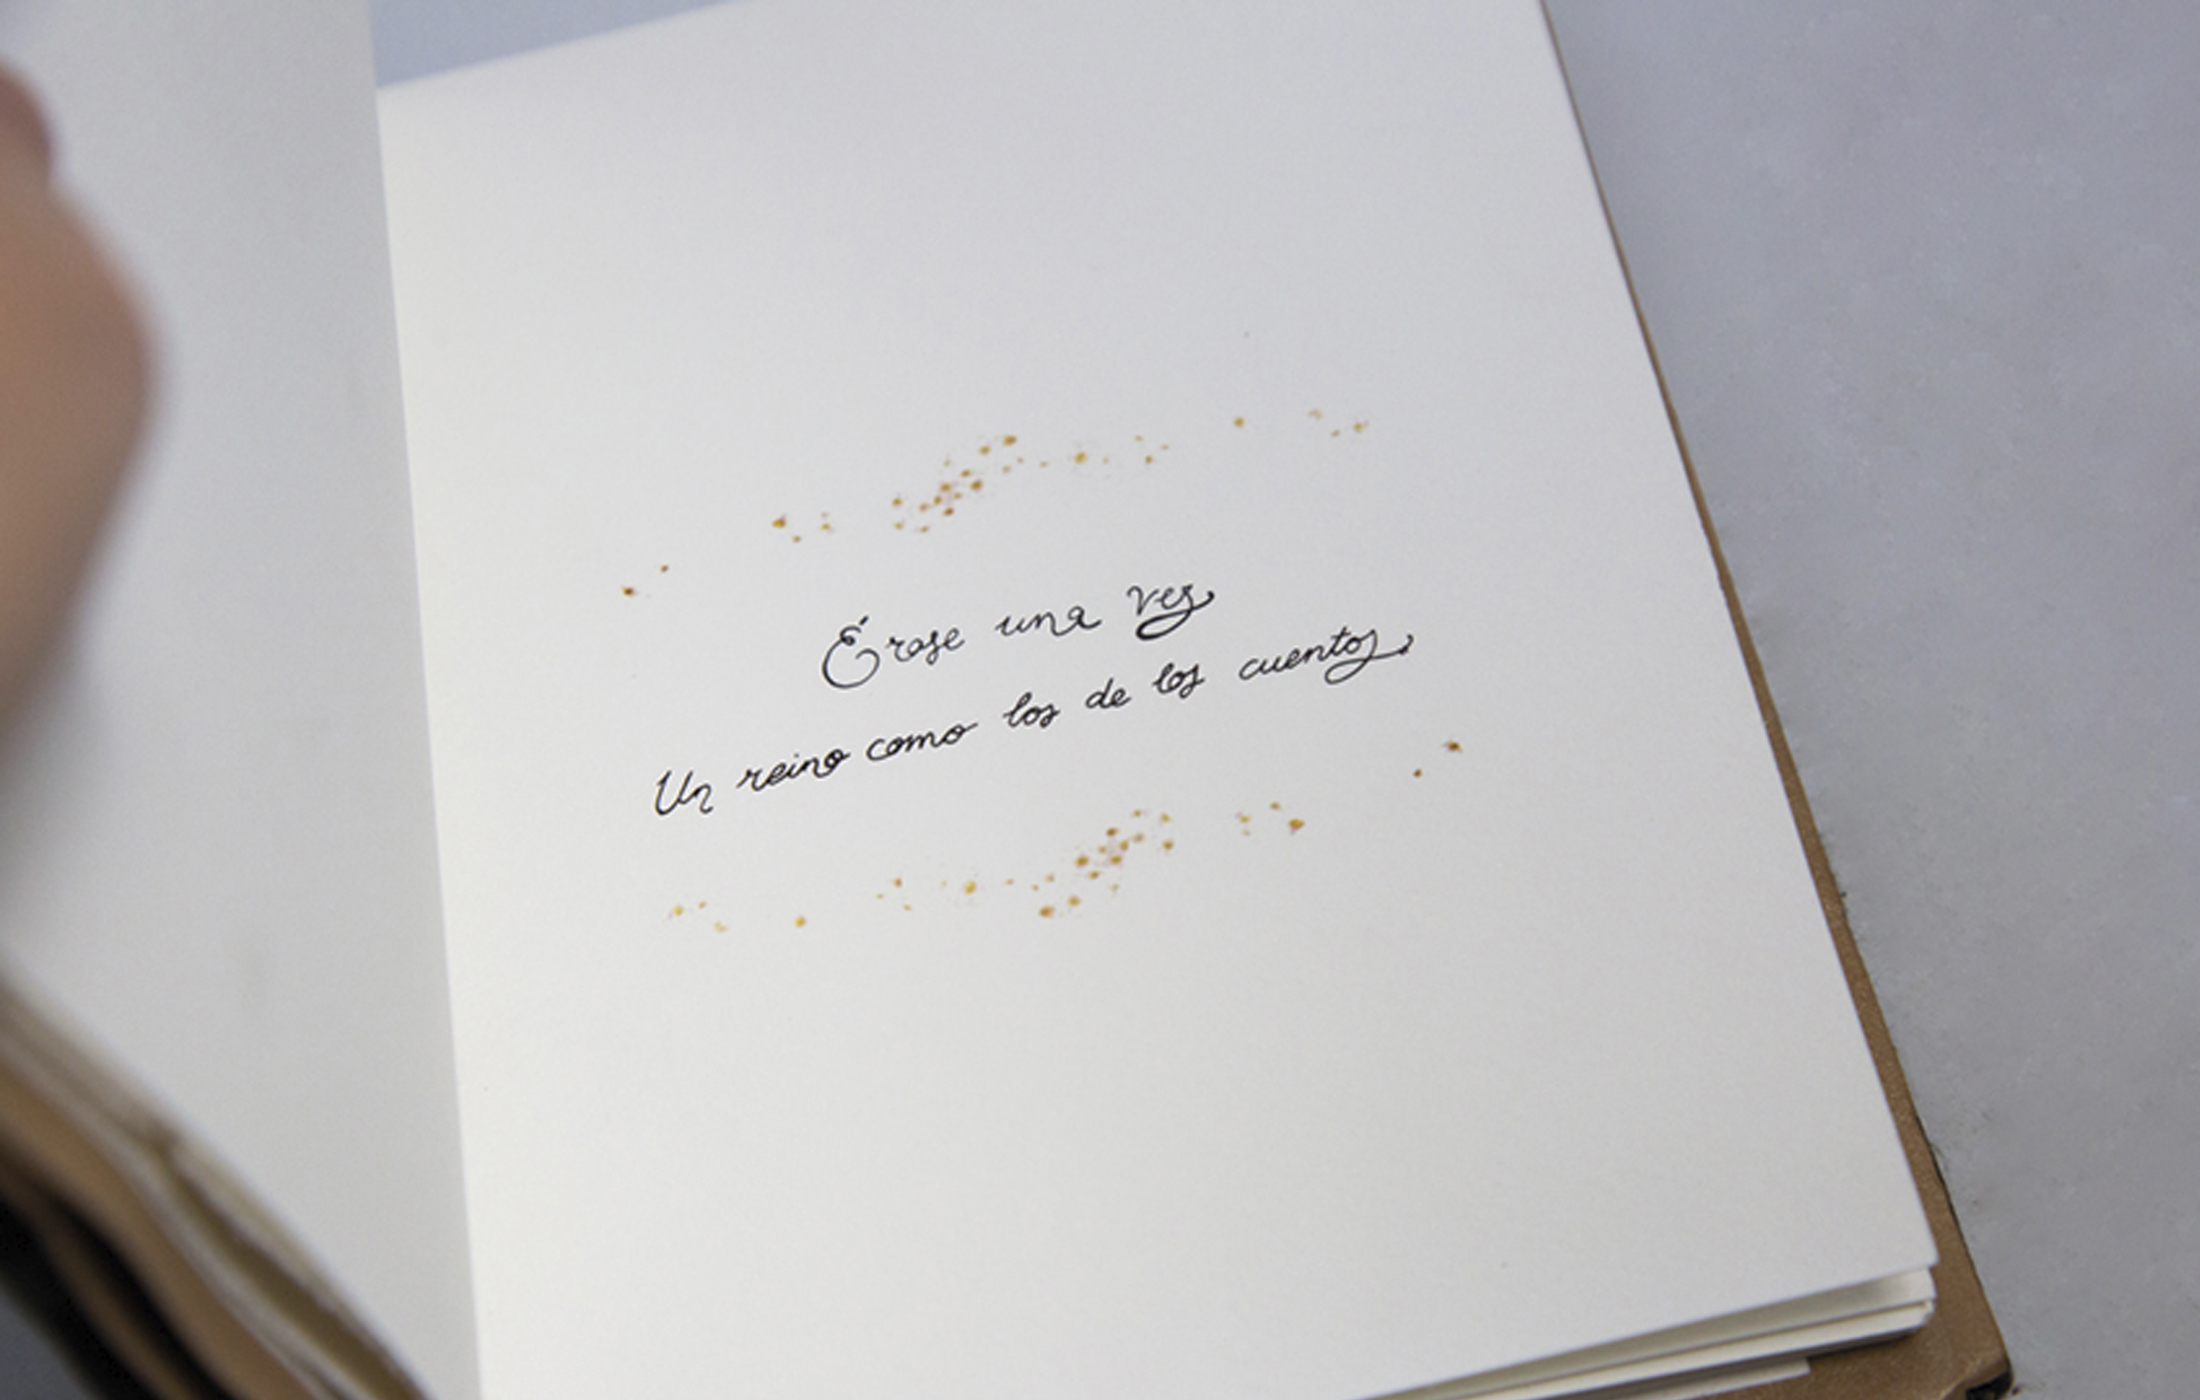 Érase una vez
Un reino como los de los cuentos